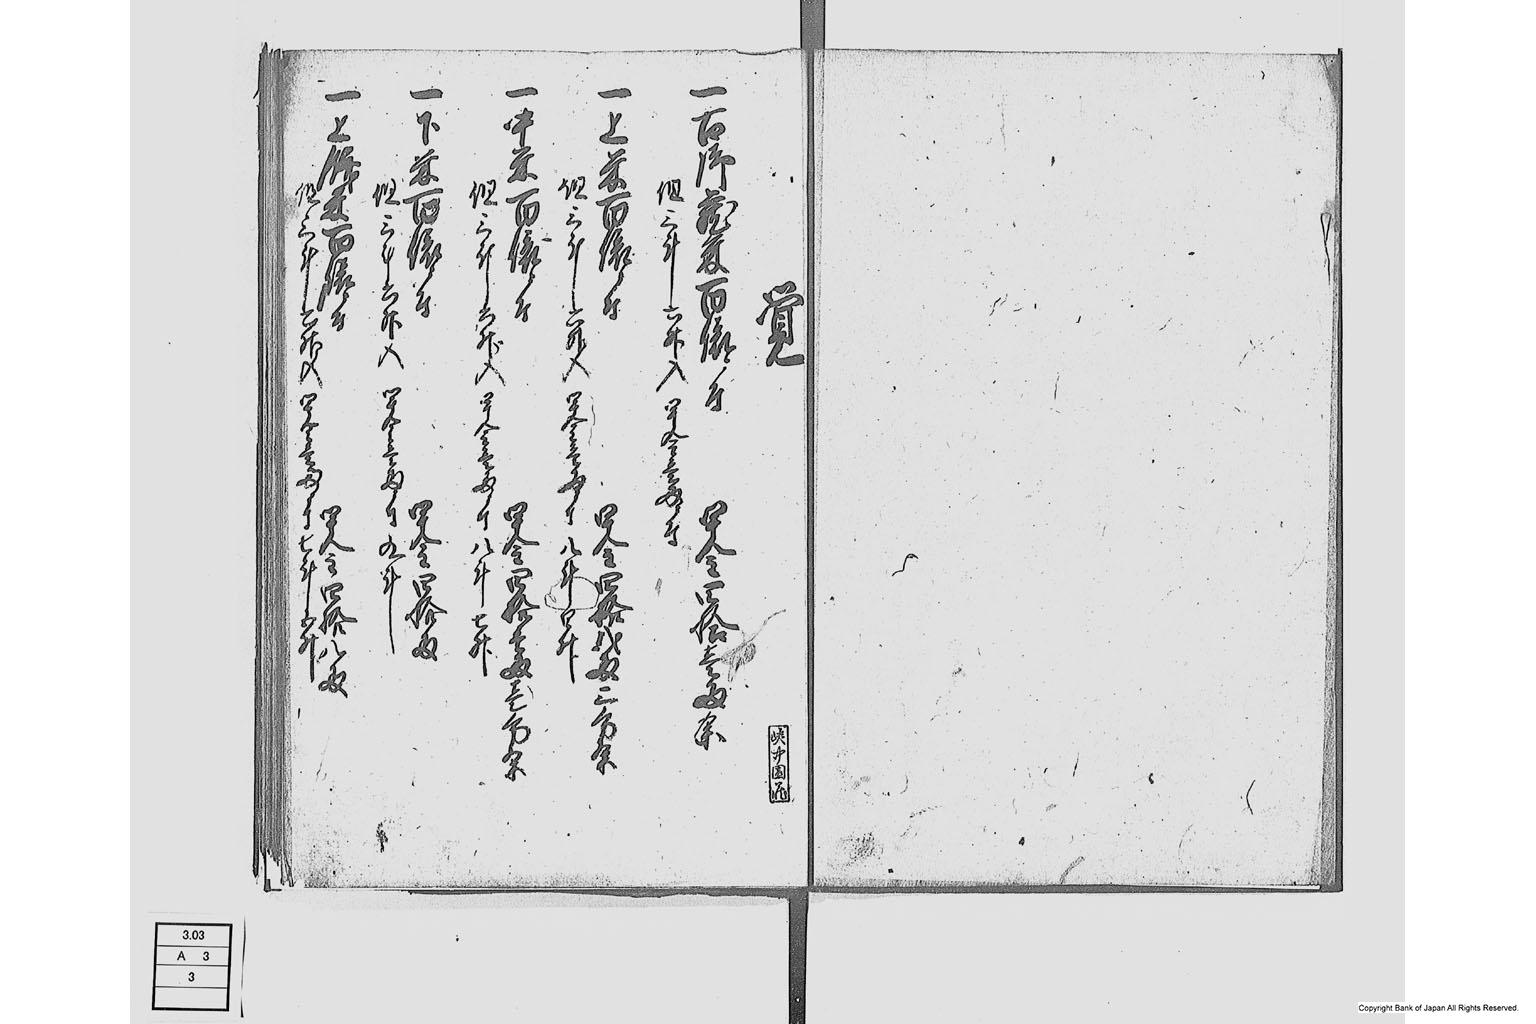 覚
一古御蔵米百俵ニ付
代金四拾壱両余
但三斗六升入
代金壱両ニ付
一上米百俵ニ付
代金四拾弐両三分余
但三斗六升入
代金壱両ニ付八斗四升
一中米百俵ニ付
代金四拾壱両壱分余
但三斗六升入
代金壱両ニ付八斗七升
一下米百俵ニ付
代金四拾両
但三斗六升入
代金壱両ニ付九斗
一上餅米百俵ニ付
代金四拾八両
但三斗六升入
代金壱両ニ付七斗五升
3.03
A 3
3
Copyright Bank of Japan All Rights Reserved.